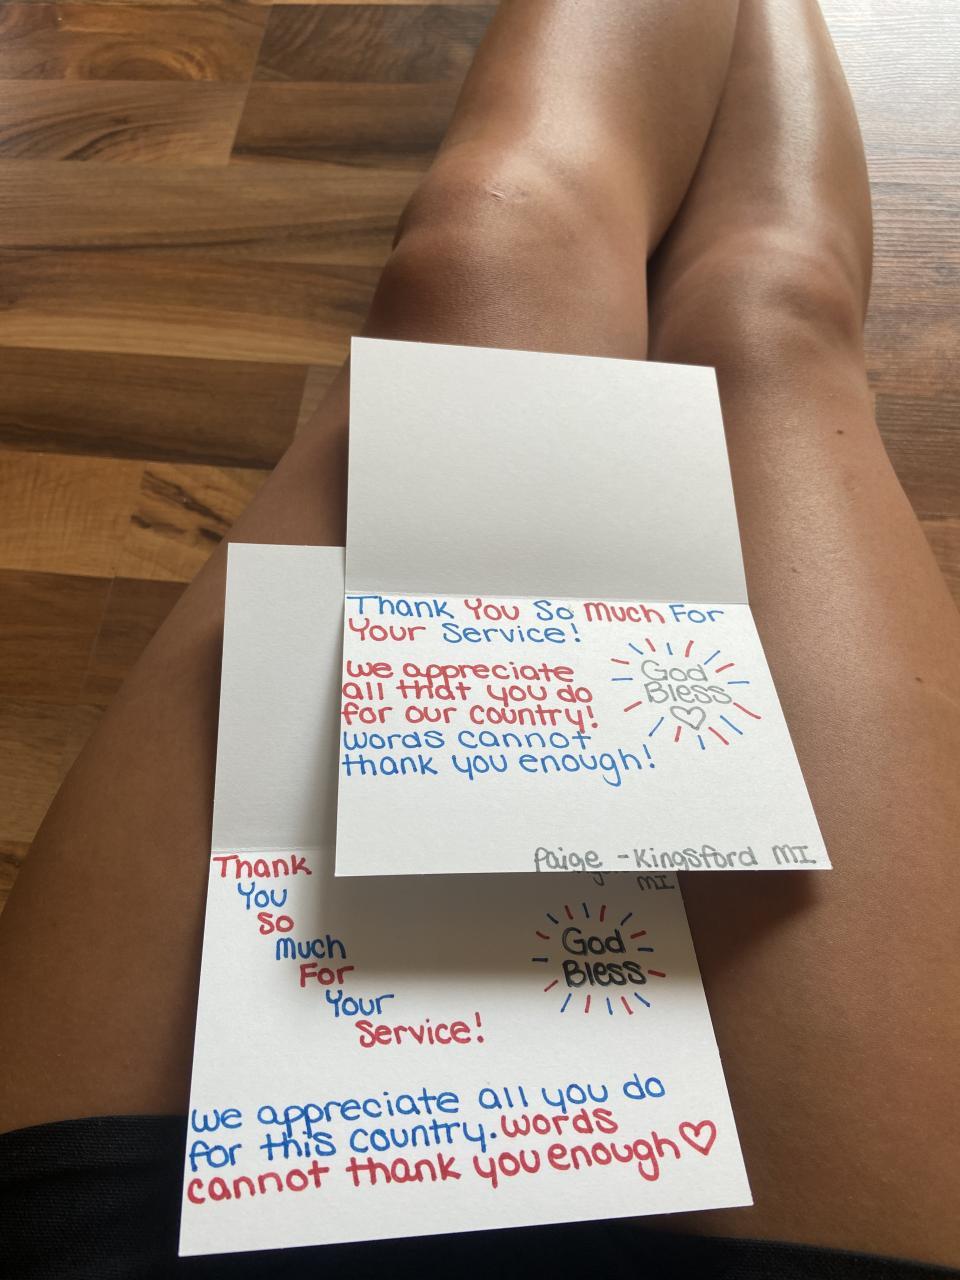 Thank You So Much For
Your Service!
We appreciate
all that you do
for our country!
Words cannot
thank you enough!
God
Bless
Paige - Kingsford MI
MI
Thank
You
So
Much
For
Your
Service!
God
Bless
We appreciate all you do
for this country. Words
cannot thank you enough